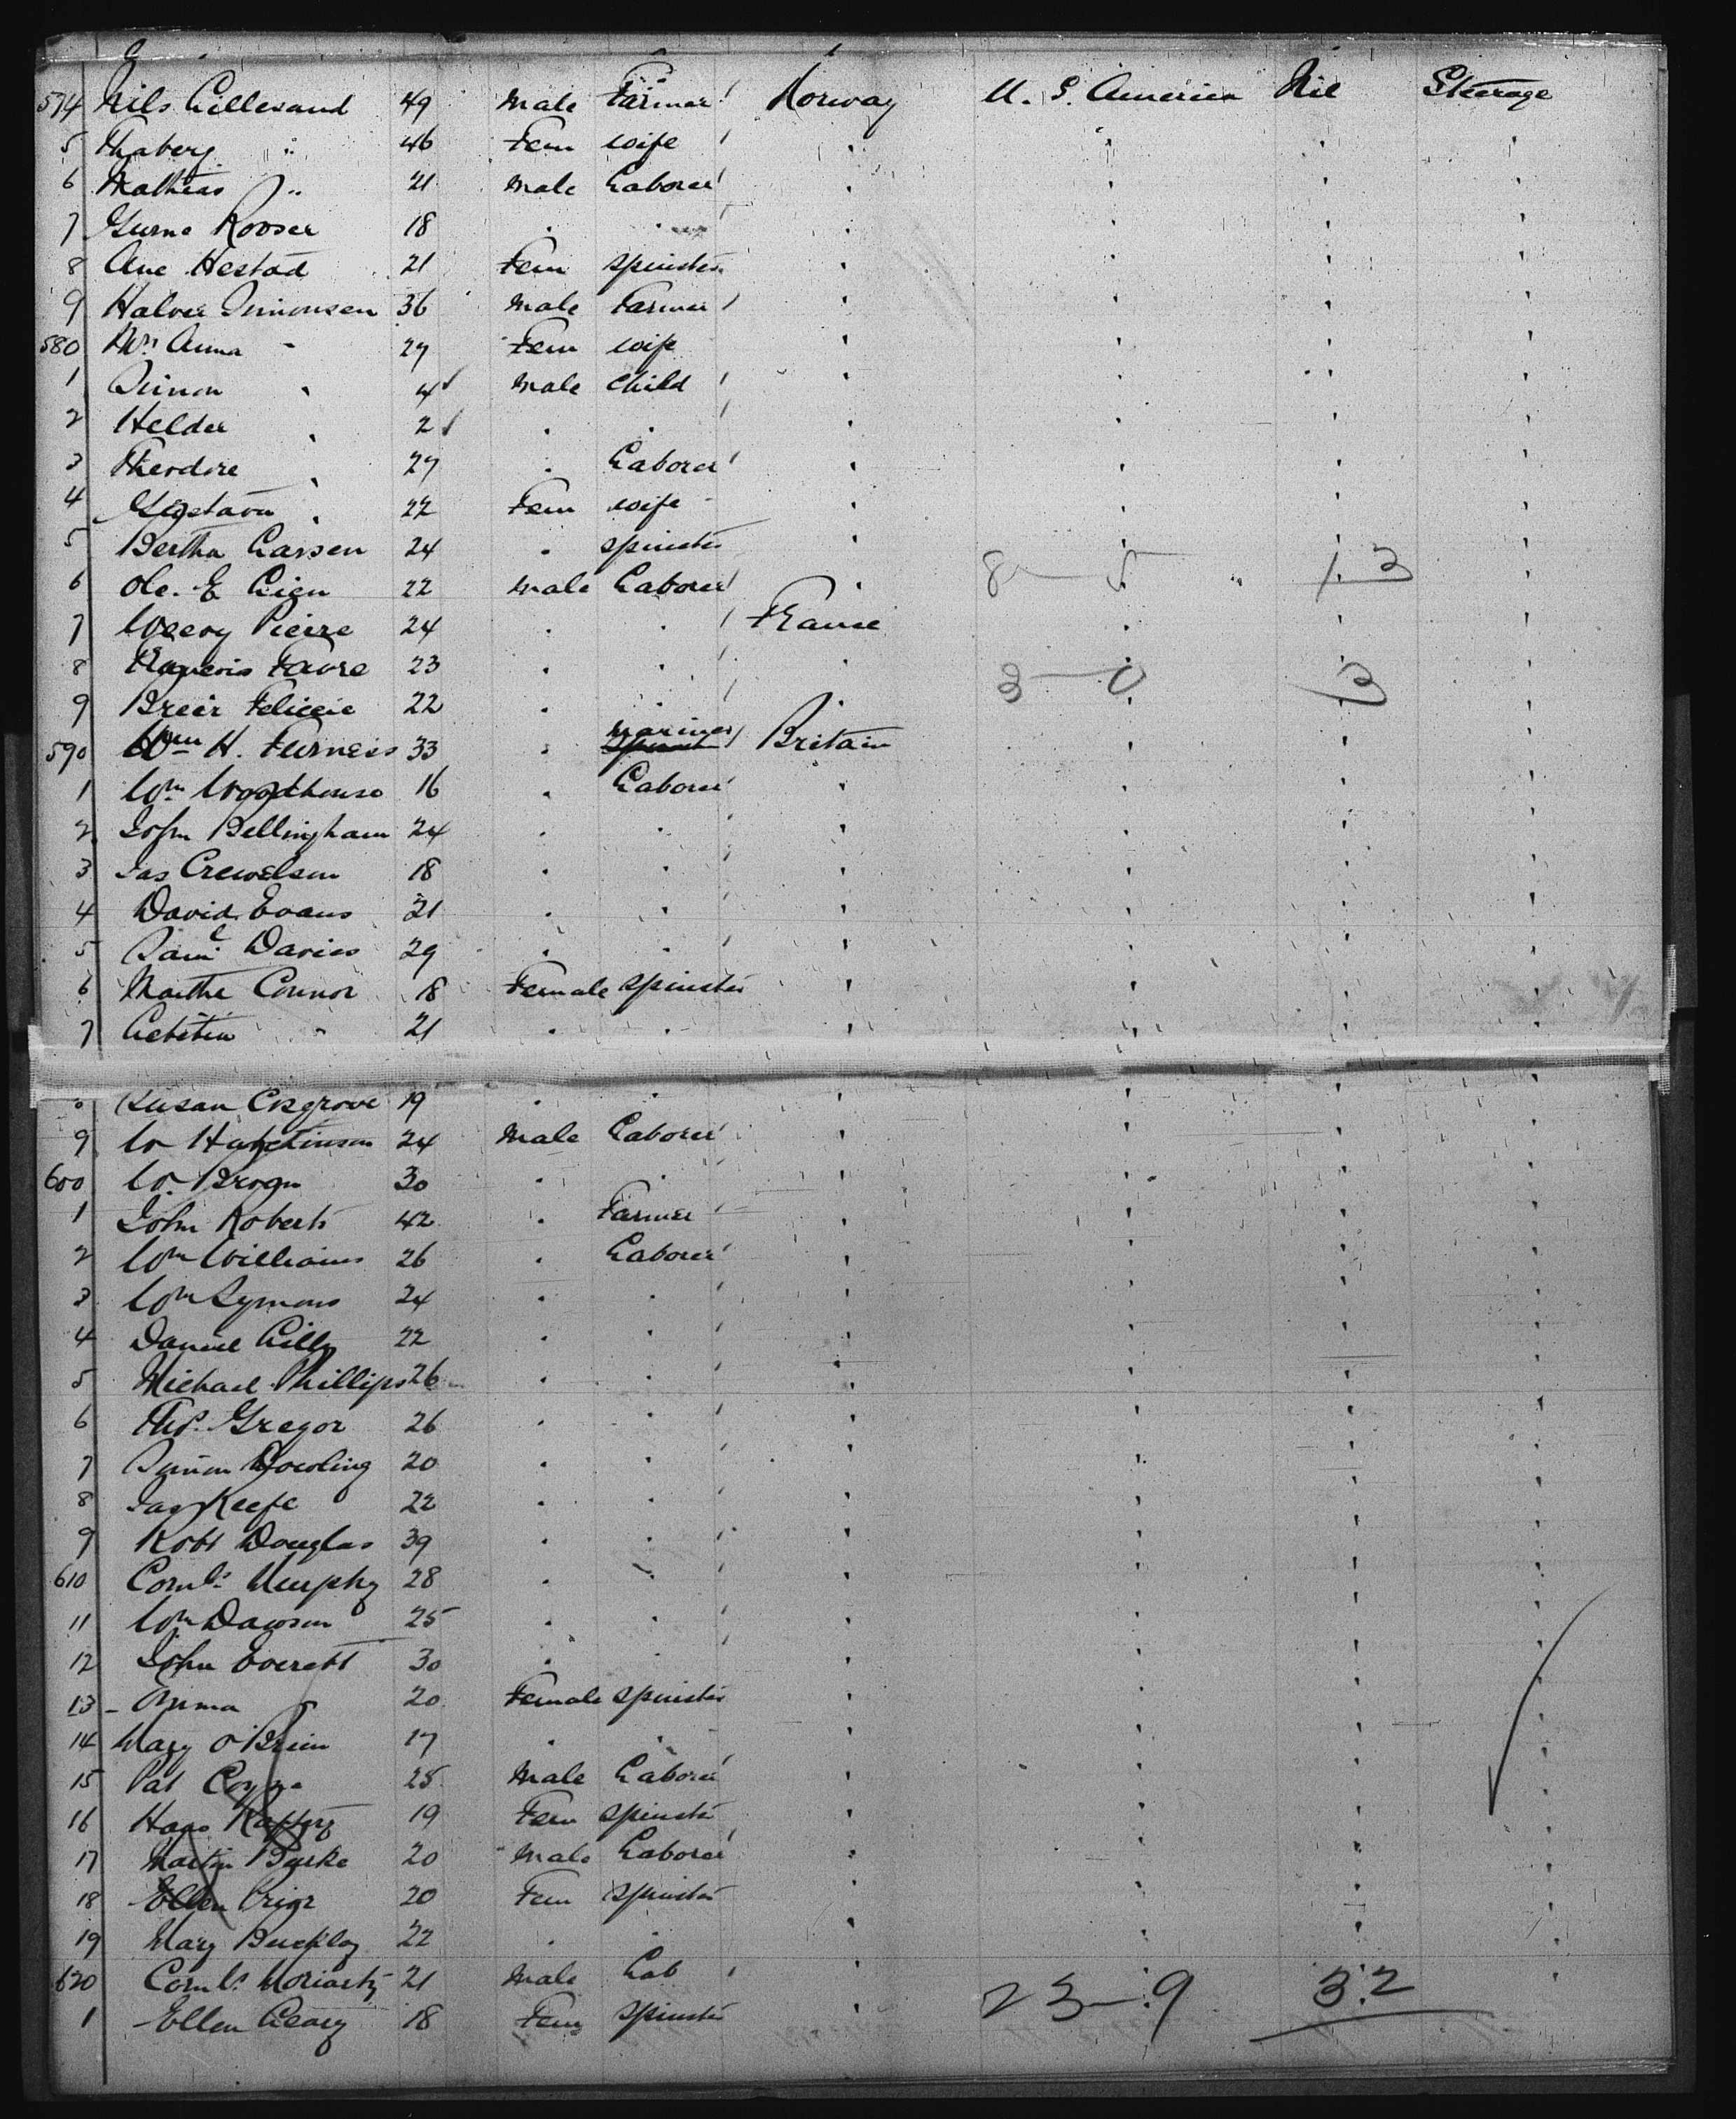 574 Nils Lillesand 49 Male Farmer Norway U. S. America Nil Steerage
5 Thaberg " 46 Fem wife ' ' ' '
6 Mathias " 21 Male Laborer ' ' ' '
7 Gurne Rooser 18 . . ' ' ' '
8 Ane Hestad 21 Fem Spinster ' ' ' '
9 Halver Simonsen 36 Male Farmer ' ' ' '
580 Mrs Anna " 27 Fem wife ' ' ' '
1 Simon " 4 Male Child ' ' ' '
2 Helder " 2 . . ' ' ' '
3 Theodore " 27 . Laborer ' ' ' '
4 Gustava " 22 Fem wife ' ' ' '
5 Bertha Larsen 24 . Spinster ' ' ' '
6 Ole. E Lien 22 Male Laborer ' 8 — 5 13 '
7 Pierre 24 . . France ' ' '
8 Francois Favre 23 . . ' ' ' '
9 Breir Felicie 22 . . ' 3 — 0 3 '
590 Wm H. Furness 33 . Mariner Britain ' ' '
1 Wm Woodhouse 16 . Laborer ' ' ' '
2 John Bellingham 24 . . ' ' ' '
3 Jas Crewelson 18 . . ' ' ' '
4 David Evans 21 . . ' ' ' '
5 Saml Davies 29 . . ' ' ' '
6 Martha Connor 18 Female Spinster ' ' ' '
7 Letitia " 21 . . ' ' ' '
8 Susan Cosgrove 19 . . ' ' ' '
9 W Hutchinson 24 Male Laborer ' ' ' '
600 W. Brogn 30 . . ' ' ' '
1 John Roberts 42 . Farmer ' ' ' '
2 Wm Williams 26 . Laborer ' ' ' '
3 Wm Symons 24 . . ' ' ' '
4 Daniel Lilly 22 . . ' ' ' '
5 Michael Phillips 26 . . ' ' ' '
6 Thos. Gregor 26 . . ' ' ' '
7 Simon Dowling 20 . . ' ' ' '
8 Jas Keefe 22 . . ' ' ' '
9 Robt Douglas 39 . . ' ' ' '
610 Cornls Murphy 28 . . ' ' ' '
11 Wm Dawson 25 . . ' ' ' '
12 John Everett 30 . . ' ' ' '
13 Emma " 20 Female Spinster ' ' ' '
14 Mary O'Brien 17 . . ' ' ' '
15 Pat Coyne 25 Male Laborer ' ' ' '
16 Rafferty 19 Fem Spinster ' ' ' '
17 Martin Burke 20 Male Laborer ' ' ' '
18 Ellen Prior 20 Fem Spinster ' ' ' '
19 Mary Buckley 22 . . ' ' ' '
620 Cornls Moriarty 21 Male Lab ' 23 — 9 32 '
1 Ellen Geary 18 Fem Spinster '